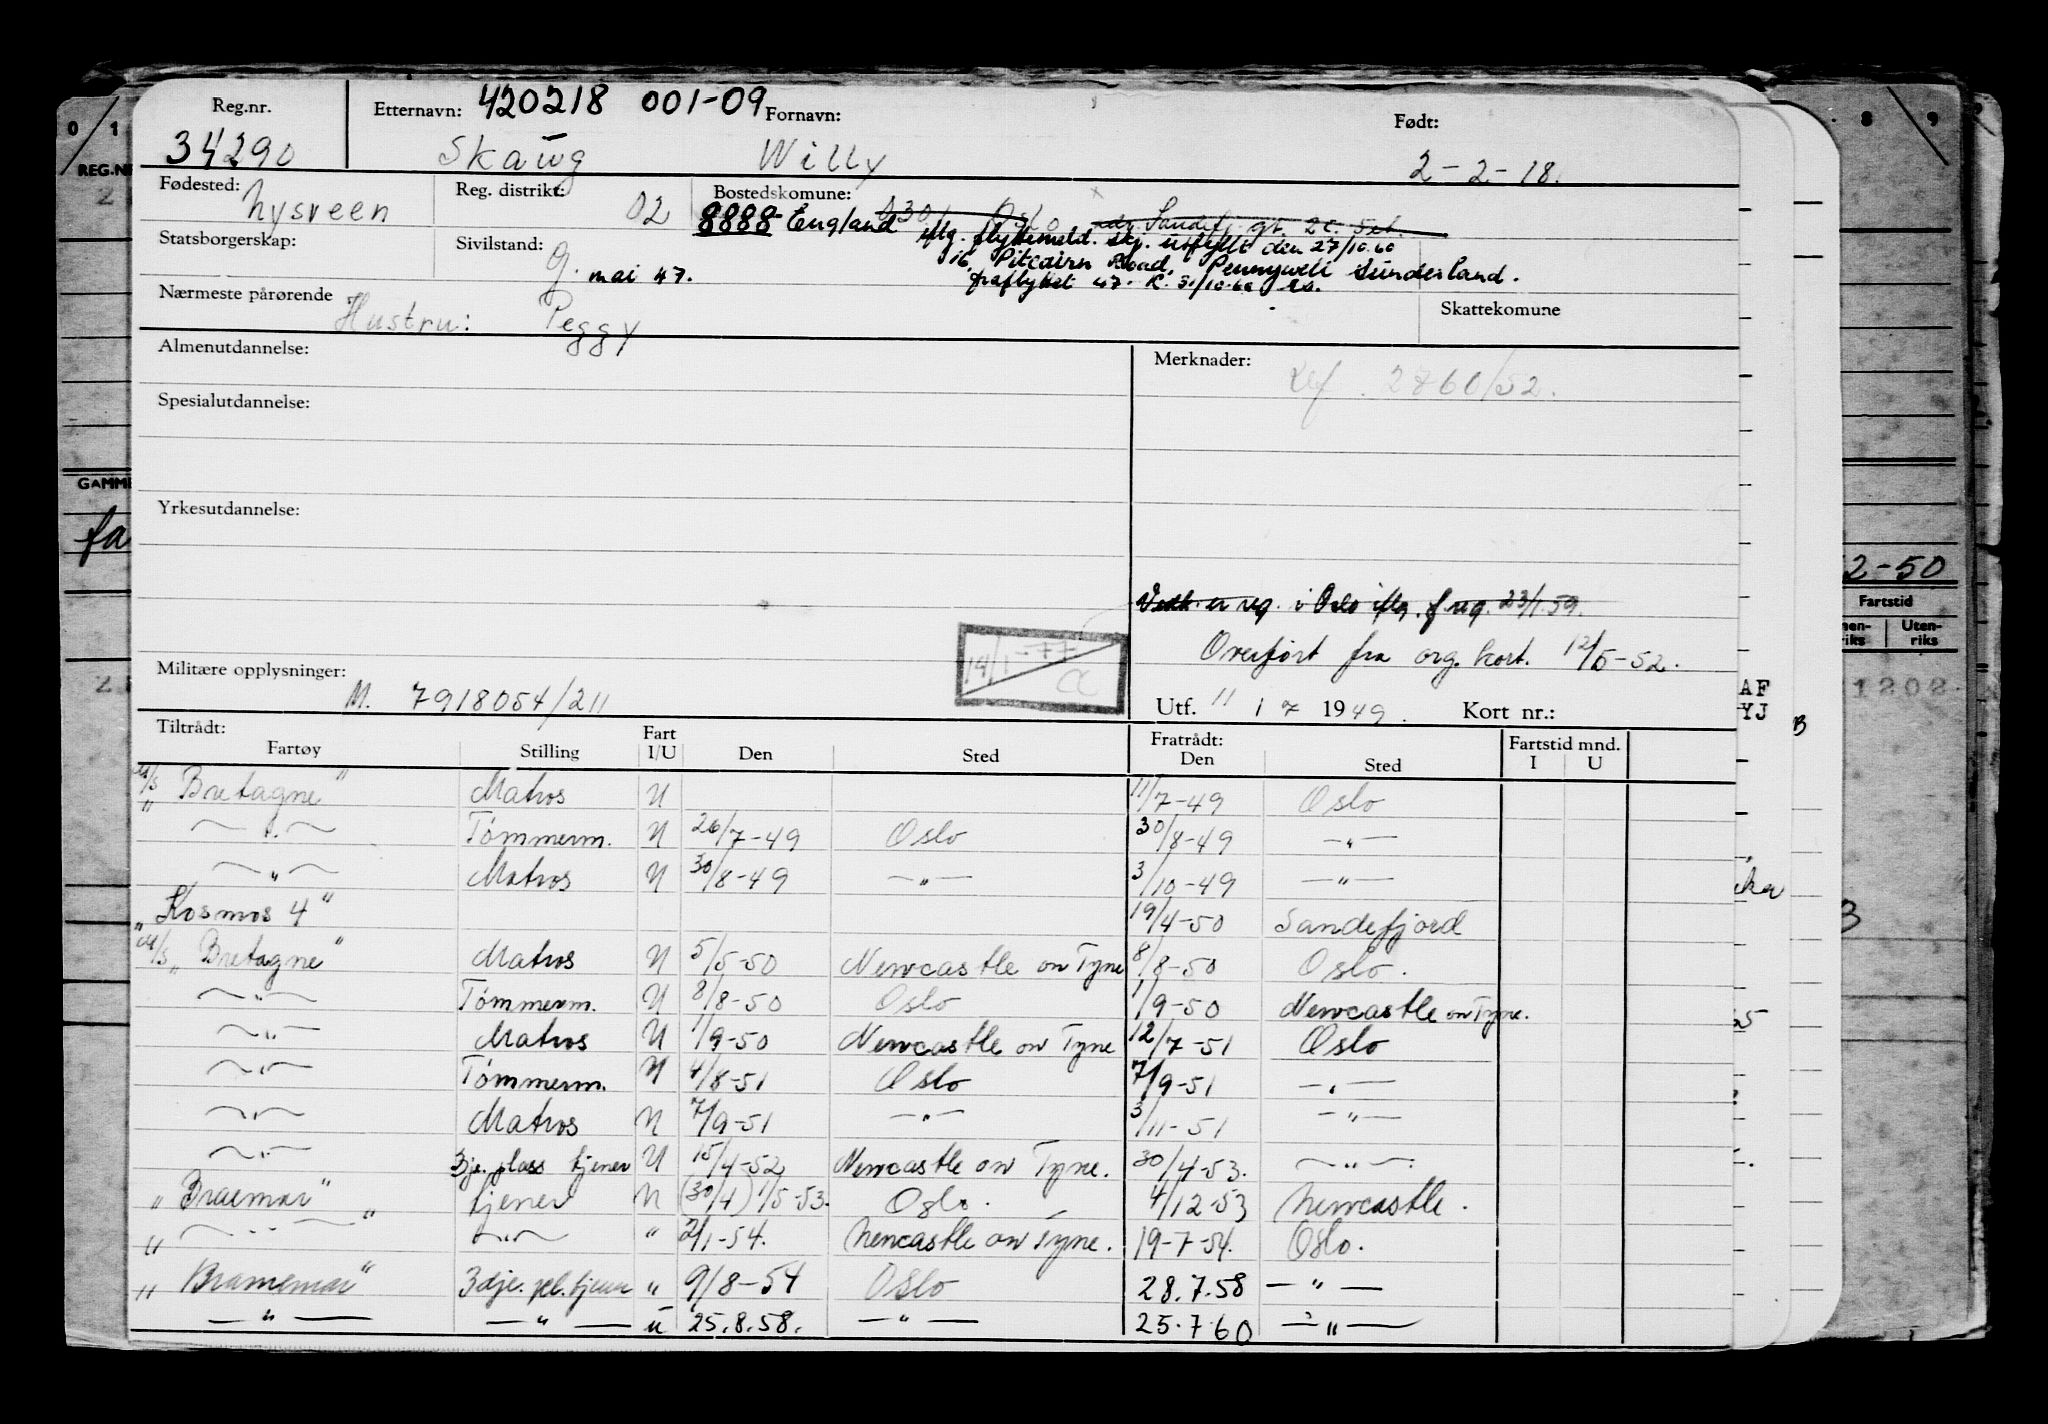 Reg.nr. Etternavn: 420218 001-09 Fornavn: Født:
34290 Skaug Willy 2-2-18.
Fødested: Nysveen Reg. distrikt: 02 Bostedskomune:
8888 England Oslo
iflg. flyttemeld. skj. utfyllt den 27/10.60
Statsborgerskap: Sivilstand: g. mai 47.
16 Pitcairn Road, Pennywell Sunderland.
fraflyttet 47. K. 31/10.60
Nærmeste pårørende Hustru: Peggy Skattekomune
Almenutdannelse: Merknader:
2860/52.
Spesialutdannelse:
Yrkesutdannelse:
er reg. i Oslo iflg. f reg. 23/1.59.
Overført fra org. kort. 12/5-52.
14/1-77
Militære opplysninger: M. 7918054/211
Utf. 11 / 7 1949. Kort nr.:
Tiltrådt: Fratrådt: Fartstid mnd.
Fartøy Stilling Fart I/U Den Sted Den Sted I U
M/S "Bretagne" Matros U 11/7-49 Oslo
— " — Tømmerm. U 26/7-49 Oslo 30/8-49 — " —
— " — Matros U 30/8-49 — " — 3/10-49 — " —
"Kosmos 4" 19/4-50 Sandefjord
M/S "Bretagne" Matros U 5/5-50 Newcastle on Tyne 8/8-50 Oslo.
— " — Tømmerm. U 8/8-50 Oslo 1/9-50 Newcastle on Tyne.
— " — Matros U 1/9-50 Newcastle on Tyne 12/7-51 Oslo
— " — Tømmerm. U 4/8-51 Oslo 7/9-51 — " —
— " — Matros U 7/9-51 — " — 3/11-51 — " —
— " — 3je. plass tjener U 15/4-52 Newcastle on Tyne. 30/4-53. — " —
"Braemar" tjener U (30/4) 1/5-53. Oslo. 4/12-53 Newcastle.
" — " — " — " — " 2/1-54. Newcastle on Tyne. 19-7-54. Oslo.
"Bramemar" 3dje. pl. tjener " 9/8-54 Oslo 28.7.58 — " —
— " — — " — u 25.8.58. — " — 25.7.60 — " —
0/1
REG.NR
GAMME
fa
8 9
2-50
Fartstid
Uten-
riks
1202
AF
YJ
B